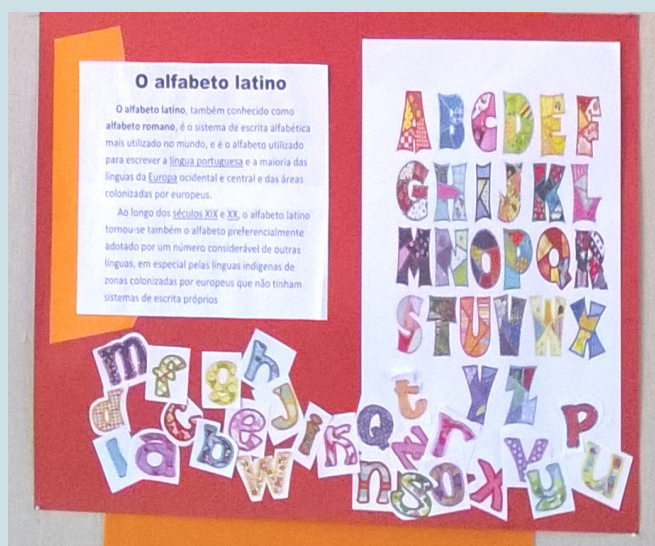 O alfabeto latino
O alfabeto latino, também conhecido como
alfabeto romano, é o sistema de escrita alfabética
mais utilizado no mundo, e é o alfabeto utilizado
para escrever a língua portuguesa e a maioria das
línguas da Europa ocidental e central e das áreas
colonizadas por europeus.
Ao longo dos séculos XIX e XX, o alfabeto latino
tornou-se também o alfabeto preferencialmente
adotado por um número considerável de outras
línguas, em especial pelas línguas indígenas de
zonas colonizadas por europeus que não tinham
sistemas de escrita próprios
A B C D E F
G H I J K L
M N O P Q R
S T U V W X
Y Z
m f g h
d c e j i k Q t z r p
l a b w n s o x v y u